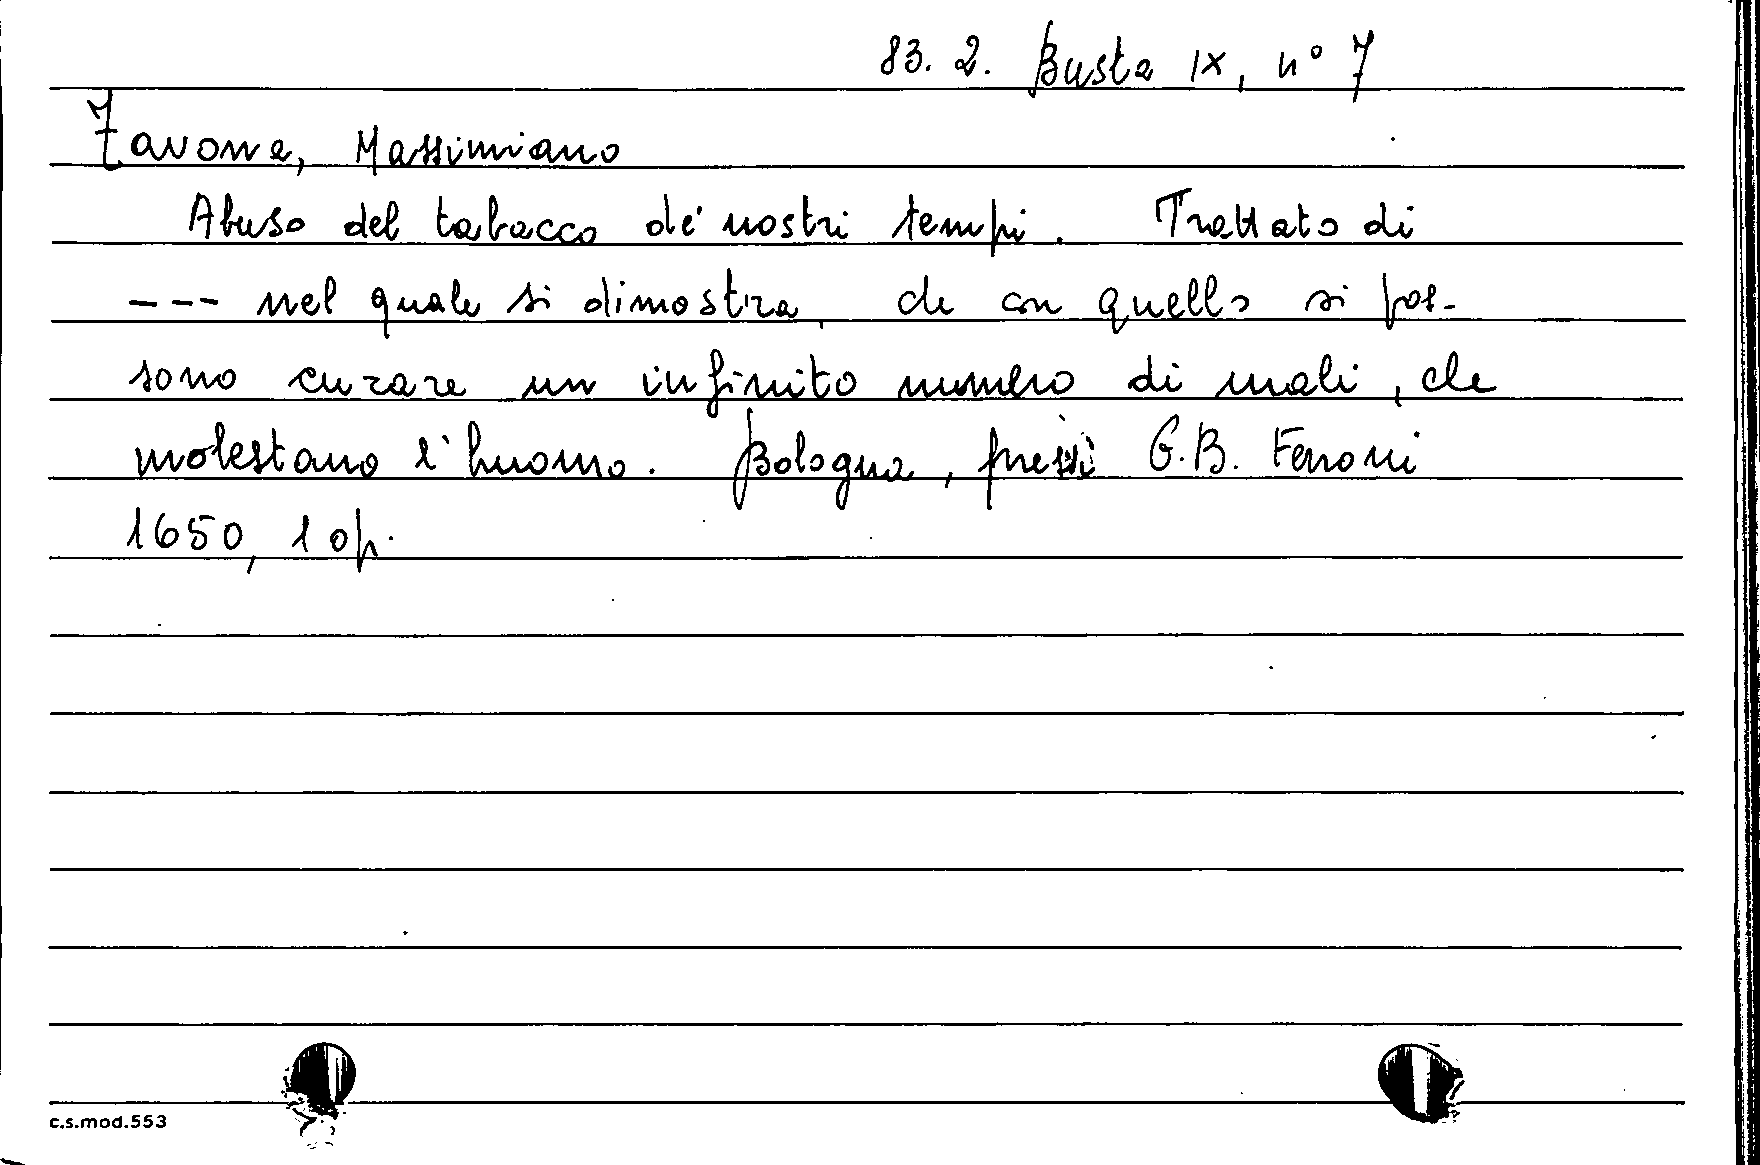 83. 2. Busta IX, n° 7
Zavona, Massimiano
Abuso del tabacco de' nostri tempi. Trattato di
--- nel quale si dimostra, che con quello si pos-
sono curare un infinito numero di mali, che
molestano l'huomo. Bologna, presso G.B. Ferroni
1650, 1 op.
c.s.mod.553